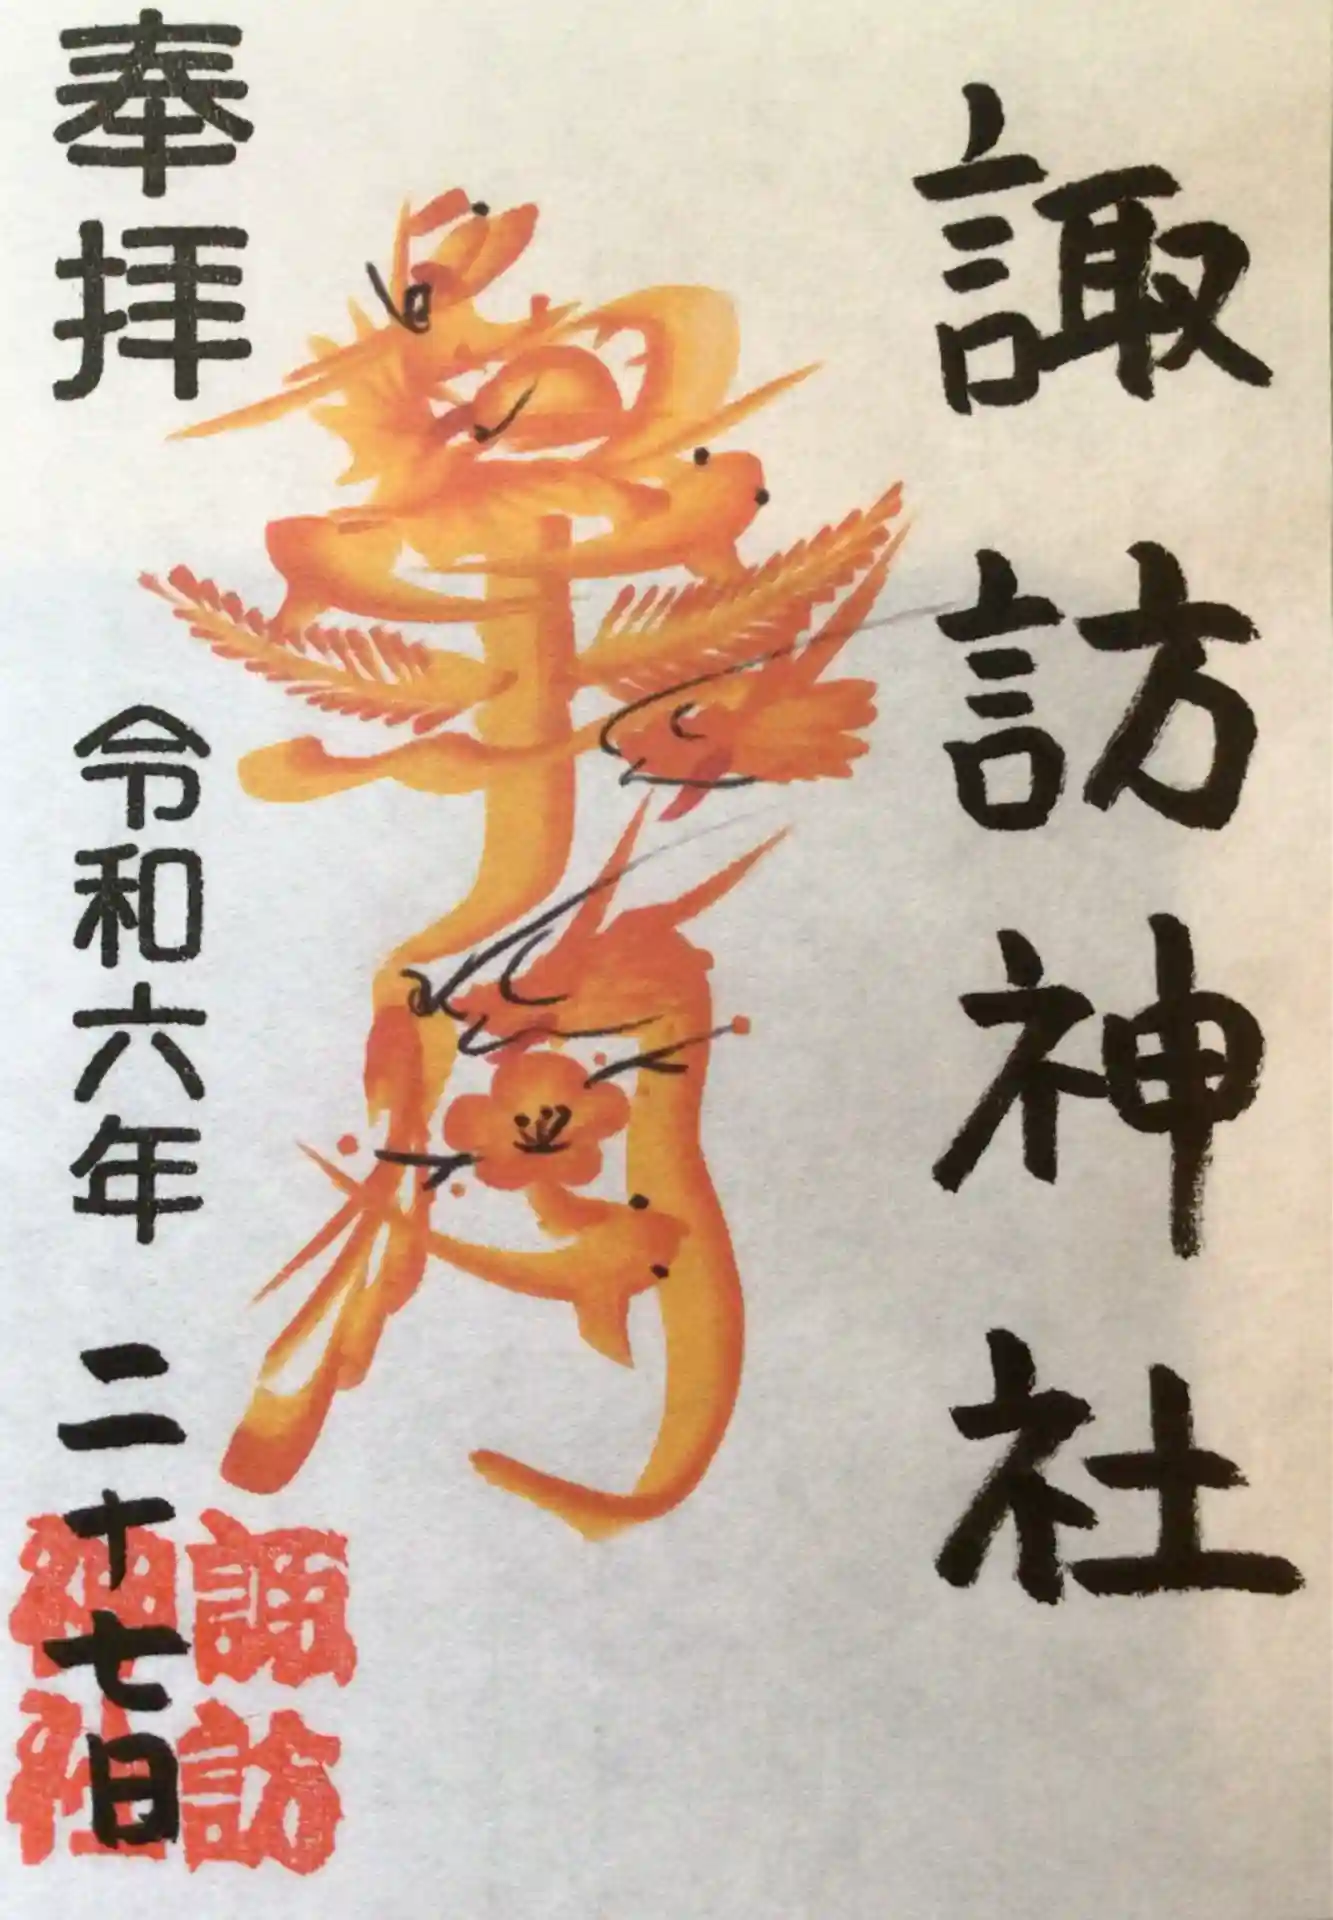 諏訪神社
奉拝
令和六年 二十七日
諏訪
神社